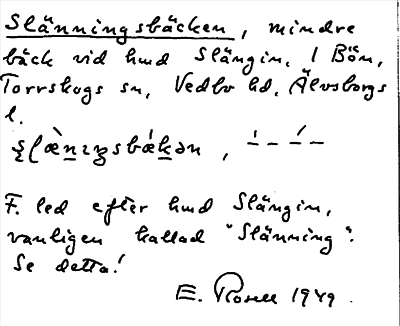 Slänningsbäcken, mindre
bäck vid hmd Slängin, i Bön,
Torrskogs sn, Vedbo hd, Älvsborgs
l.
F. led efter hmd Slängin,
vanligen kallad "Slänning".
Se detta!
E. Rosell 1949.